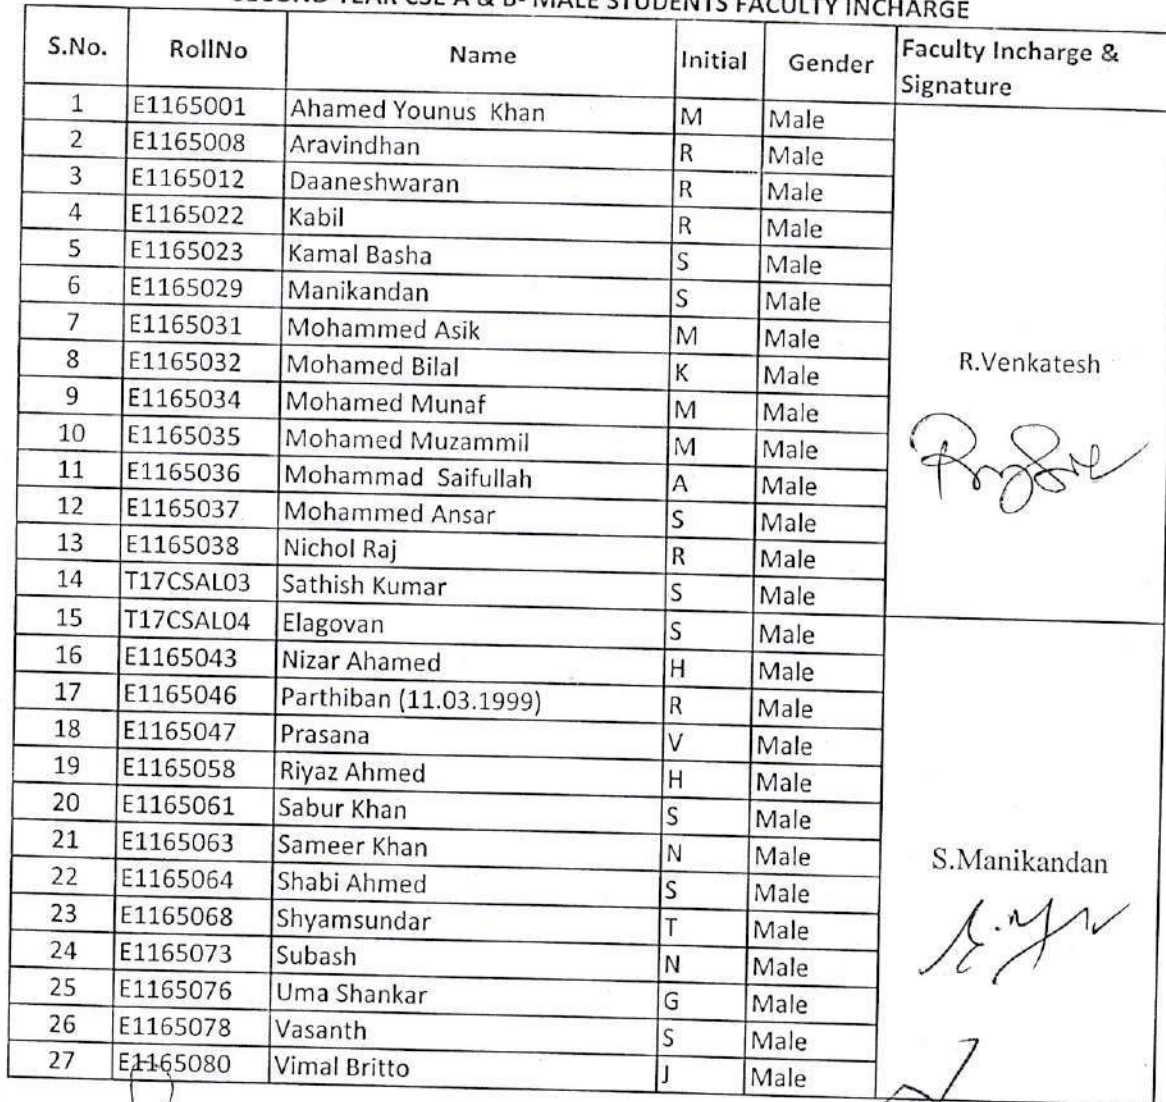 SECOND YEAR CSE A & B- MALE STUDENTS FACULTY INCHARGE
S.No. RollNo Name Initial Gender Faculty Incharge & Signature
1 E1165001 Ahamed Younus Khan M Male
2 E1165008 Aravindhan R Male
3 E1165012 Daaneshwaran R Male
4 E1165022 Kabil R Male
5 E1165023 Kamal Basha S Male
6 E1165029 Manikandan S Male
7 E1165031 Mohammed Asik M Male
8 E1165032 Mohamed Bilal K Male R.Venkatesh
9 E1165034 Mohamed Munaf M Male
10 E1165035 Mohamed Muzammil M Male
11 E1165036 Mohammad Saifullah A Male
12 E1165037 Mohammed Ansar S Male
13 E1165038 Nichol Raj R Male
14 T17CSAL03 Sathish Kumar S Male
15 T17CSAL04 Elagovan S Male
16 E1165043 Nizar Ahamed H Male
17 E1165046 Parthiban (11.03.1999) R Male
18 E1165047 Prasana V Male
19 E1165058 Riyaz Ahmed H Male
20 E1165061 Sabur Khan S Male
21 E1165063 Sameer Khan N Male S.Manikandan
22 E1165064 Shabi Ahmed S Male
23 E1165068 Shyamsundar T Male
24 E1165073 Subash N Male
25 E1165076 Uma Shankar G Male
26 E1165078 Vasanth S Male
27 E1165080 Vimal Britto J Male